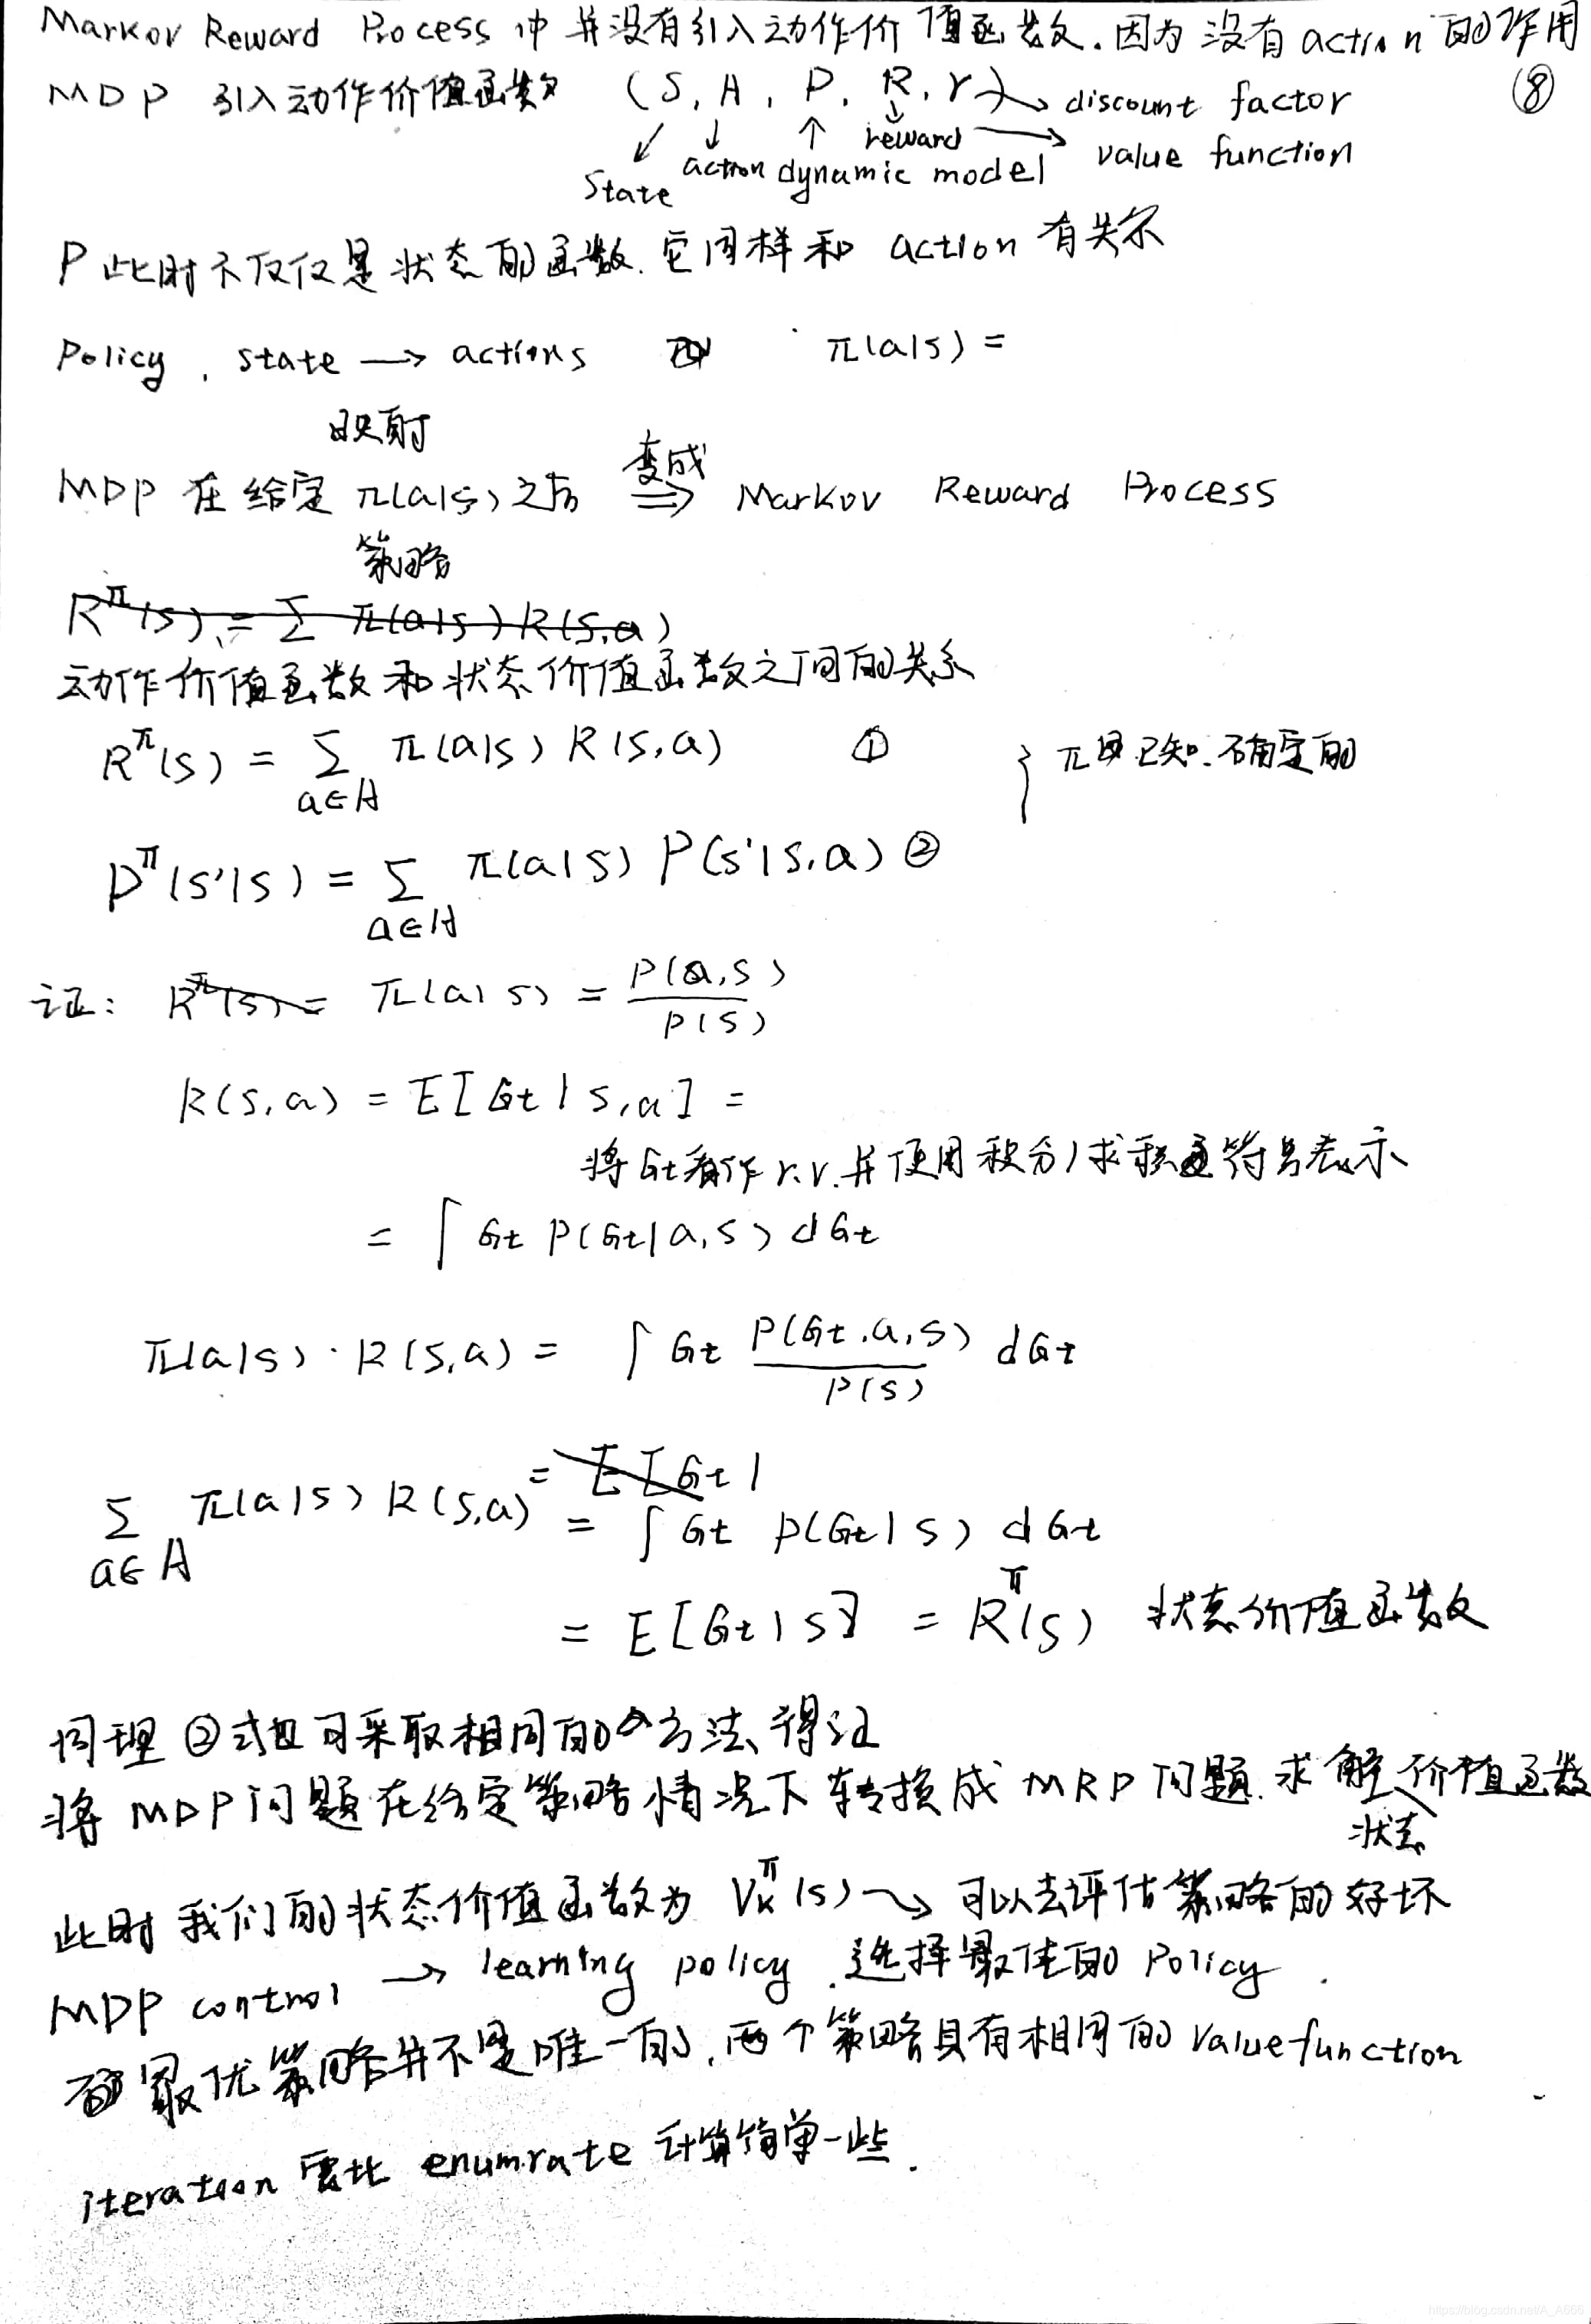 Markov Reward Process 中并没有引入动作价值函数.因为没有action的作用
MDP 引入动作价值函数 (S, A, P, R, γ) → discount factor ⑧
reward → value function
state action dynamic model
P此时不仅仅是状态的函数.它同样和 action 有关系
Policy. state → actions π(a|s) =
映射
MDP 在给定 π(a|s) 之后 变成 ⇒ Markov Reward Process
策略
R^π(s) = Σ π(a|s) R(s,a)
动作价值函数和状态价值函数之间的关系
R^π(s) = Σ_{a∈A} π(a|s) R(s,a) ① } π是已知.确定的
P^π(s'|s) = Σ_{a∈A} π(a|s) P(s'|s,a) ②
证: R^π(s) = π(a|s) = P(a,s) / P(s)
R(s,a) = E[Gt|s,a] =
将Gt看作r.v.并使用积分/求和符号表示
= ∫ Gt P(Gt|a,s) dGt
π(a|s)·R(s,a) = ∫ Gt P(Gt,a,s) / P(s) dGt
Σ_{a∈A} π(a|s) R(s,a) = E[Gt|
= ∫ Gt P(Gt|s) dGt
= E[Gt|s] = R^π(s) 状态价值函数
同理②式也可采取相同的方法得证
将MDP问题在给定策略情况下转换成MRP问题.求解价值函数
状态
此时我们的状态价值函数为 V_K^π(s) → 可以去评估策略的好坏
MDP control → learning policy.选择最佳的 Policy.
最优策略并不是唯一的,两个策略具有相同的 value function
iteration 要比 enumrate 计算简单一些.
https://blog.csdn.net/A_A666